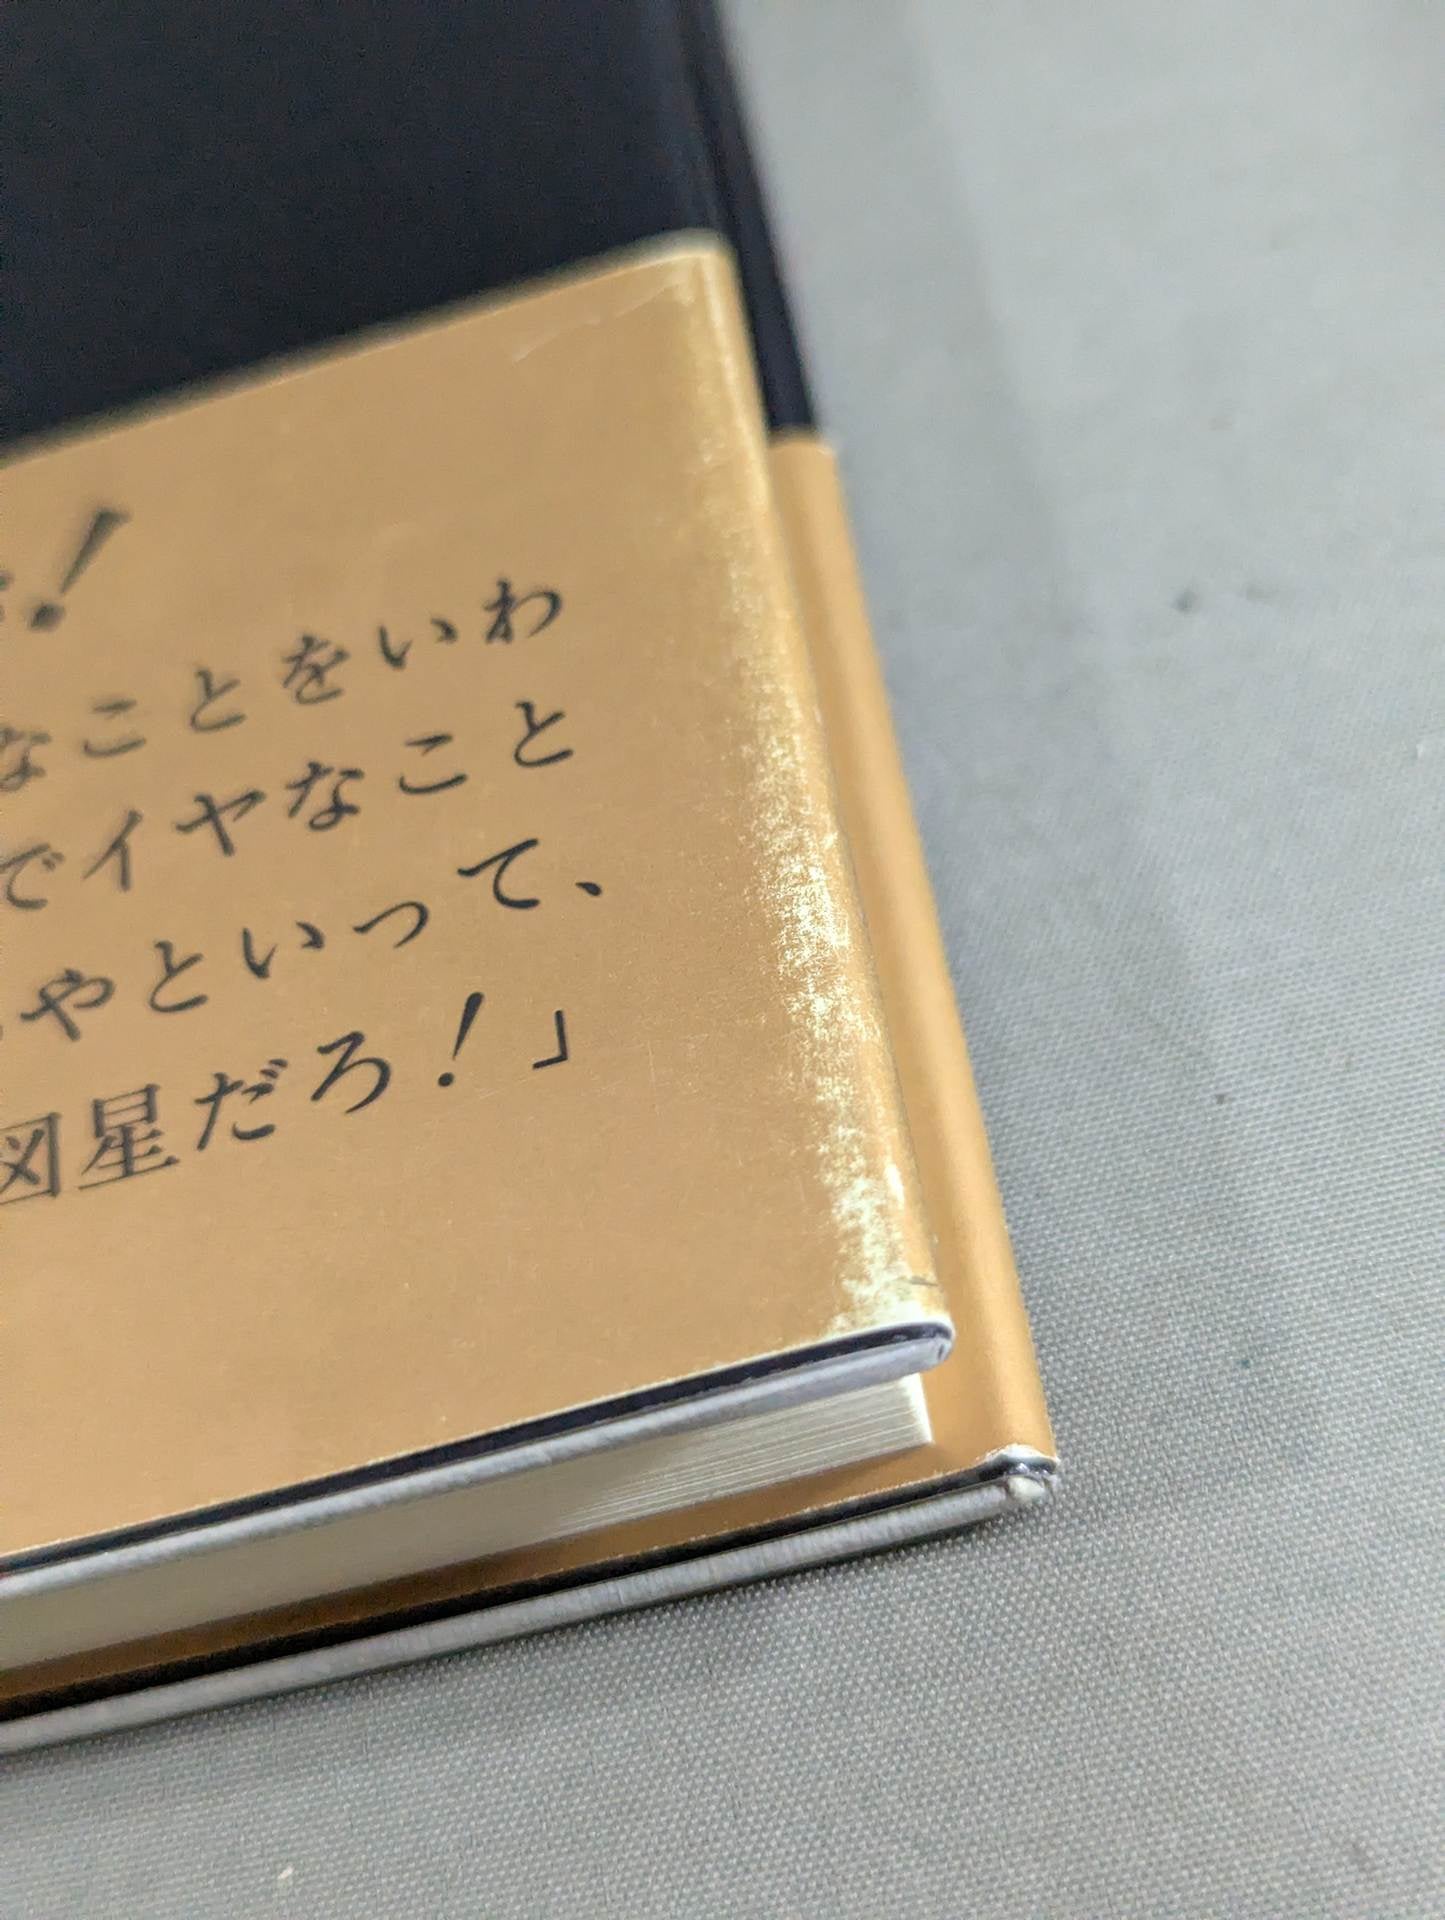 ！
なことをいわ
でイヤなこと
やといって、
図星だろ！」